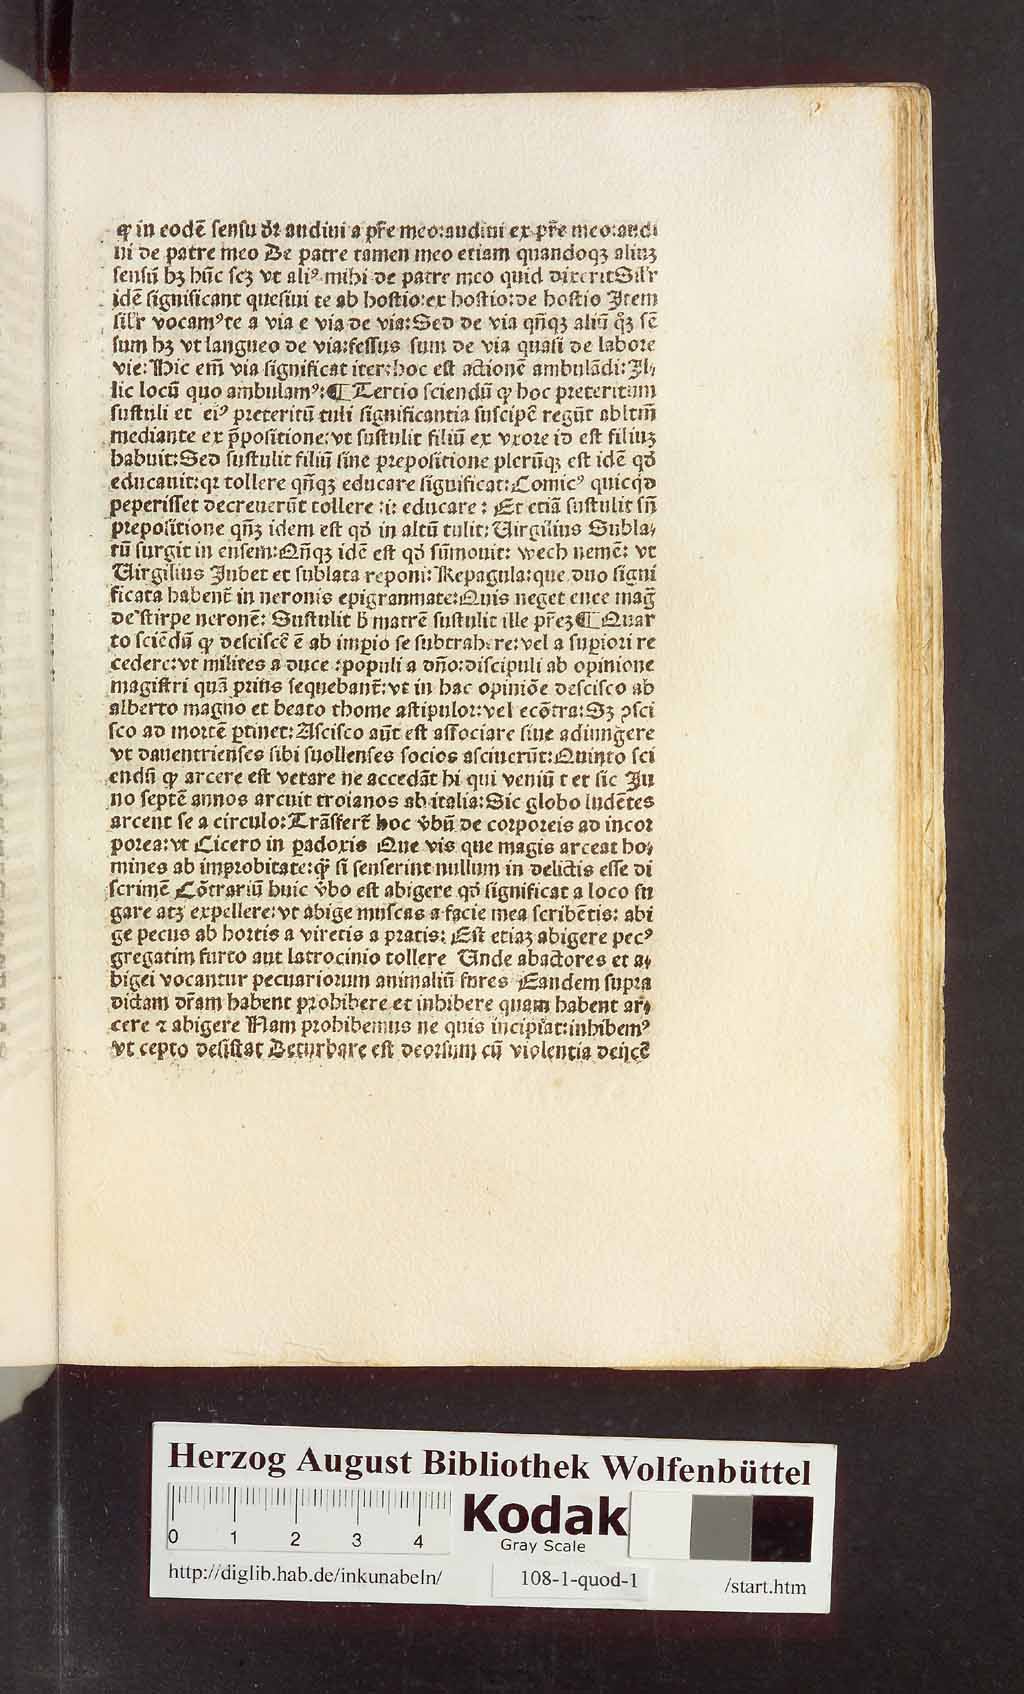 ꝙ in eodē sensu dꝛ audiui a pr̄e meo:audiui ex pr̄e meo:audi
ui de patre meo De patre tamen meo etiam quandoqꝫ aliuꝫ
sensū hꝫ hūc scꝫ vt aliꝰ mihi de patre meo quid dixerit Sil'r
idē significant quesiui te ab hostio:ex hostio:de hostio Item
sil'r vocamꝰ te a via e via de via:Sed de via qn̄qꝫ aliū qꝫ sē
sum hꝫ vt langueo de via:fessus sum de via quasi de labore
vie: Hic em̄ via significat iter:hoc est actionē ambulādi:Il/
lic locū quo ambulamꝰ:¶ Tertio sciendū ꝙ hoc preteritum
sustuli et eiꝰ preteritū tuli significantia suscipē regūt abltm̄
mediante ex p̄positione:vt sustulit filiū ex vxore id est filiuꝫ
habuit:Sed sustulit filiū sine prepositione plerūqꝫ est idē qd
educauit:qꝛ tollere qn̄qꝫ educare significat:Comicꝰ quicqd
peperisset decreuerūt tollere :i: educare : Et etiā sustulit sn̄
prepositione qn̄qꝫ idem est qd in altū tulit: Virgilius Subla/
tū surgit in ensem:Qn̄qꝫ idē est qd sūmouit: wech nemē: vt
Virgilius Iubet et sublata reponi: Repagula:que duo signi
ficata habent̄ in neronis epigranmate:Quis neget enee maḡ
de stirpe neronē: Sustulit h̄ matrē sustulit ille pr̄eꝫ ¶ Quar
to sciēdū ꝙ desciscē ē ab impio se subtrahere:vel a supiori re
cedere:vt milites a duce :populi a dn̄o:discipuli ab opinione
magistri quā prius sequebant̄:vt in hac opiniōe descisco ab
alberto magno et beato thome astipulor:vel ecōtra:Sꝫ ꝯsci
sco ad mortē ptinet:Ascisco aūt est associare siue adiungere
vt dauentrienses sibi suollenses socios asciuerūt:Quinto sci
endū ꝙ arcere est vetare ne accedāt hi qui veniū t et sic Iu
no septē annos arcuit troianos ab italia:Sic globo ludētes
arcent se a circulo:Trāsfert̄ hoc v̄bū de corporeis ad incor
porea:vt Cicero in padoxis Que vis que magis arceat ho/
mines ab improbitate:ꝙ si senserint nullum in delictis esse di
scrimē Cōtrariū huic v̄bo est abigere qd significat a loco fu
gare atꝫ expellere:vt abige muscas a facie mea scribētis: abi
ge pecus ab hortis a viretis a pratis: Est etiaꝫ abigere pecꝰ
gregatim furto aut latrocinio tollere Unde abactores et a/
bigei vocantur pecuariorum animaliū fures Eandem supra
dictam dr̄am habent prohibere et inhibere quam habent ar/
cere ⁊ abigere Nam prohibemus ne quis incipiat:inhibemꝰ
vt cepto desistat Deturbare est deorsum cū violentia deijcē
Herzog August Bibliothek Wolfenbüttel
0 1 2 3 4
Kodak
Gray Scale
http://diglib.hab.de/inkunabeln/ 108-1-quod-1 /start.htm